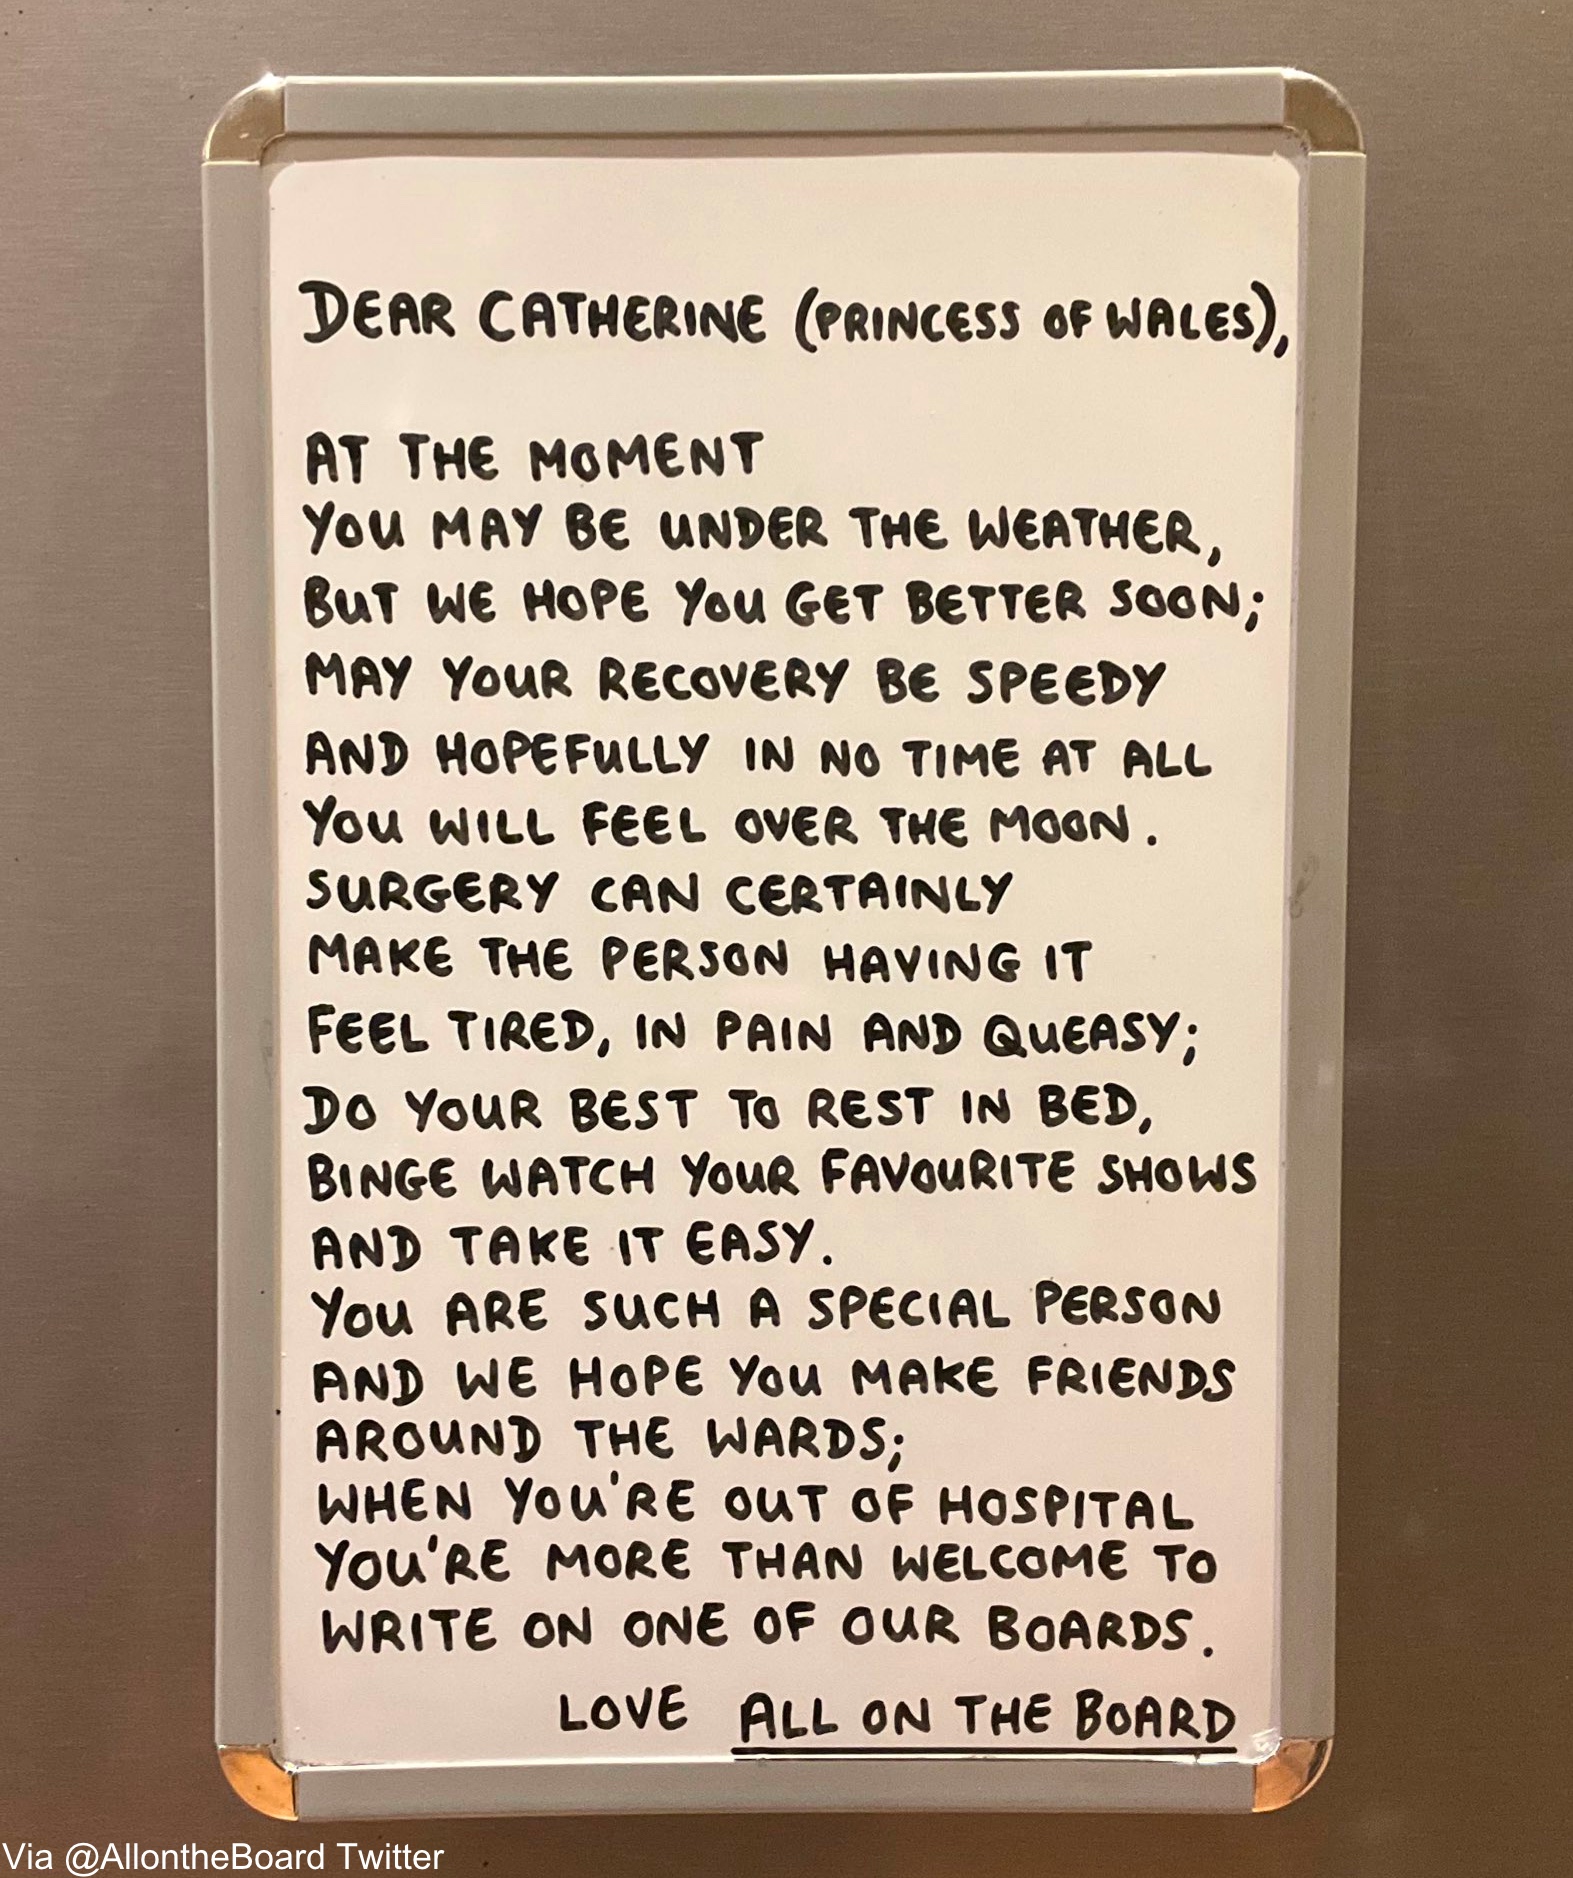 DEAR CATHERINE (PRINCESS OF WALES),
AT THE MOMENT
YOU MAY BE UNDER THE WEATHER,
BUT WE HOPE YOU GET BETTER SOON;
MAY YOUR RECOVERY BE SPEEDY
AND HOPEFULLY IN NO TIME AT ALL
YOU WILL FEEL OVER THE MOON.
SURGERY CAN CERTAINLY
MAKE THE PERSON HAVING IT
FEEL TIRED, IN PAIN AND QUEASY;
DO YOUR BEST TO REST IN BED,
BINGE WATCH YOUR FAVOURITE SHOWS
AND TAKE IT EASY.
YOU ARE SUCH A SPECIAL PERSON
AND WE HOPE YOU MAKE FRIENDS
AROUND THE WARDS;
WHEN YOU'RE OUT OF HOSPITAL
YOU'RE MORE THAN WELCOME TO
WRITE ON ONE OF OUR BOARDS.
LOVE ALL ON THE BOARD
Via @AllontheBoard Twitter